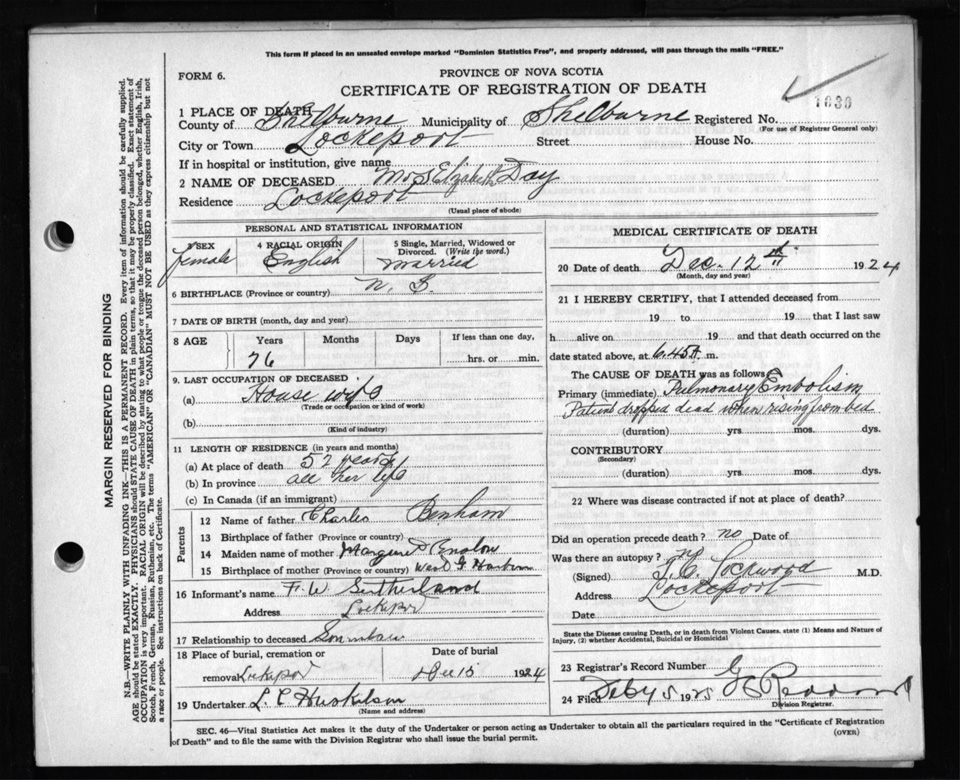 This form if placed in an unsealed envelope marked "Dominion Statistics Free", and properly addressed, will pass through the mails "FREE."
FORM 6.
PROVINCE OF NOVA SCOTIA
CERTIFICATE OF REGISTRATION OF DEATH
1030
1 PLACE OF DEATH
County of Shelburne Municipality of Shelburne Registered No.
(For use of Registrar General only)
City or Town Lockeport Street House No.
If in hospital or institution, give name
2 NAME OF DECEASED Mrs Elizabeth Day
Residence Lockeport
(Usual place of abode)
PERSONAL AND STATISTICAL INFORMATION
3 SEX female
4 RACIAL ORIGIN English
5 Single, Married, Widowed or Divorced. (Write the word.) Married
6 BIRTHPLACE (Province or country) N. S.
7 DATE OF BIRTH (month, day and year)
8 AGE Years Months Days If less than one day,
76 hrs. or min.
9. LAST OCCUPATION OF DECEASED
(a) House wife
(Trade or occupation or kind of work)
(b)
(Kind of industry)
11 LENGTH OF RESIDENCE (in years and months)
(a) At place of death 52 years
(b) In province all her life
(c) In Canada (if an immigrant)
Parents
12 Name of father Charles Benham
13 Birthplace of father (Province or country)
14 Maiden name of mother
15 Birthplace of mother (Province or country) West
16 Informant's name F. W Sutherland
Address Lockeport
17 Relationship to deceased Son in law
18 Place of burial, cremation or removal Lockeport
Date of burial Dec 15 1924
19 Undertaker L. C
MEDICAL CERTIFICATE OF DEATH
20 Date of death Dec. 12th 1924
(Month, day and year)
21 I HEREBY CERTIFY, that I attended deceased from
19 to 19 that I last saw
h alive on 19 and that death occurred on the
date stated above, at 6.45 A. m.
The CAUSE OF DEATH was as follows
Primary (immediate) Pulmonary Embolism
Patient dropped dead when rising from bed
(duration) yrs. mos. dys.
CONTRIBUTORY
(Secondary)
(duration) yrs. mos. dys.
22 Where was disease contracted if not at place of death?
Did an operation precede death? no Date of
Was there an autopsy? no
(Signed) Lockwood M.D.
Address Lockeport
Date
State the Disease causing Death, or in death from Violent Causes, state (1) Means and Nature of
Injury, (2) whether Accidental, Suicidal or Homicidal
23 Registrar's Record Number
24 Filed Feby 5 1925
Division Registrar.
SEC. 46—Vital Statistics Act makes it the duty of the Undertaker or person acting as Undertaker to obtain all the particulars required in the "Certificate of Registration
of Death" and to file the same with the Division Registrar who shall issue the burial permit.
(OVER)
MARGIN RESERVED FOR BINDING
N.B.—WRITE PLAINLY WITH UNFADING INK—THIS IS A PERMANENT RECORD. Every item of information should be carefully supplied.
AGE should be stated EXACTLY. PHYSICIANS should STATE CAUSE OF DEATH in plain terms, so that it may be properly classified. Exact statement of
OCCUPATION is very important. RACIAL ORIGIN will be described by stating to what people or tongue the deceased person belonged, whether English, Irish,
Scotch, French, German, Russian, Ruthenian, etc. The terms "AMERICAN" OR "CANADIAN" MUST NOT BE USED as they express citizenship but not
a race or people. See instructions on back of Certificate.